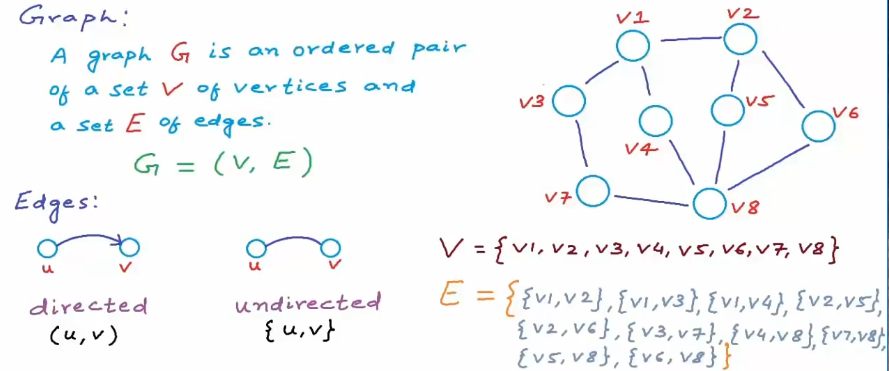 Graph:
A graph G is an ordered pair
of a set V of vertices and
a set E of edges.
G = (V, E)
Edges:
u v
directed
(u,v)
u v
undirected
{u,v}
v1 v2
v3 v5 v6
v4
v7 v8
V = {v1, v2, v3, v4, v5, v6, v7, v8}
E = {{v1,v2},{v1,v3},{v1,v4},{v2,v5},
{v2,v6},{v3,v7},{v4,v8},{v7,v8},
{v5,v8},{v6,v8}}